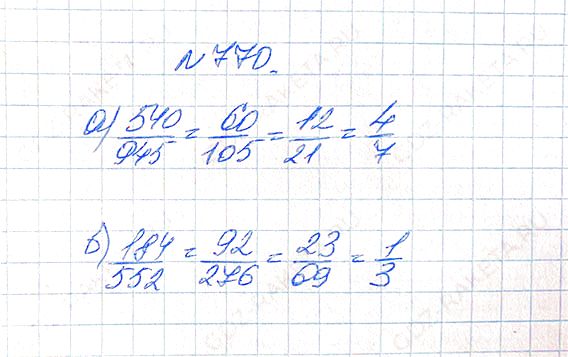 N 770.
а) 540/945 = 60/105 = 12/21 = 4/7
б) 184/552 = 92/276 = 23/69 = 1/3